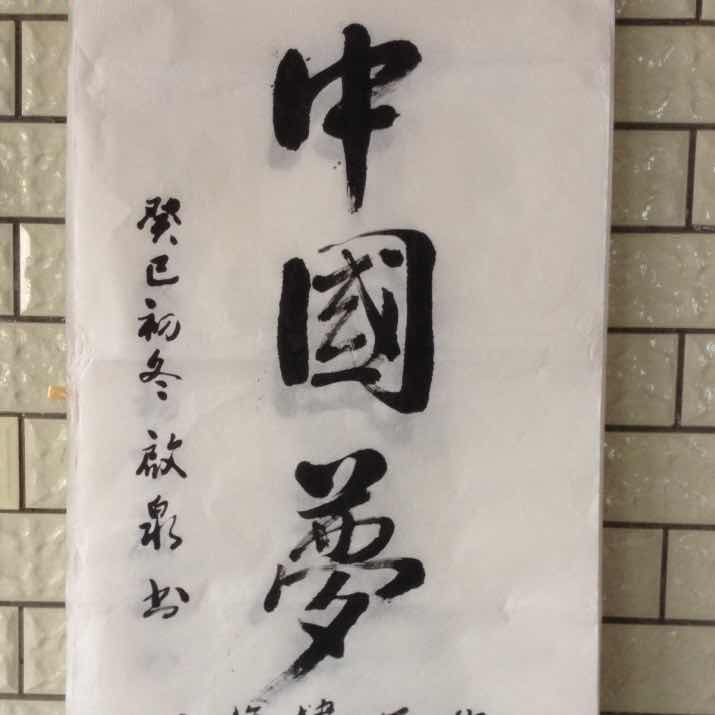 中國夢
癸巳初冬 啟泉书